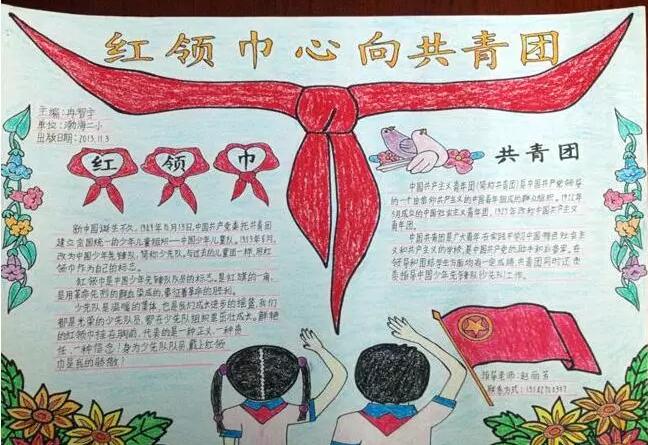 红领巾心向共青团
主编:冉智宇
单位:渤海二小
出版日期:2013.11.3
红 领 巾
新中国诞生不久,1949年10月13日,中国共产党委托共青团
建立全国统一的少年儿童组织——中国少年儿童队。1953年6月,
改为中国少年先锋队,简称少先队。与过去的儿童团一样,用红
领巾作为自己的标志。
红领巾是中国少年先锋队队员的标志。是红旗的一角,
是用革命先烈的鲜血染成的,象征着革命的胜利。
少先队是温暖的集体,也是我们成长进步的摇篮,我们
都是光荣的少先队员,都在少先队组织里茁壮成长。鲜艳
的红领巾挂在胸前,代表的是一种正义,一种责
任,一种信念!身为少先队队员,戴上红领
巾是我的骄傲!
共青团
中国共产主义青年团(简称共青团)是中国共产党领导
的一个由信仰共产主义的中国青年组成的群众组织。1922年
5月成立的中国社会主义青年团,1925年改称中国共产主义
青年团。
中国共青团是广大青年在实践中学习中国特色社会主
义和共产主义的学校,是中国共产党的助手和后备军。在
领导和团结学生方面均有一定成绩。共青团同时还受
委托指导中国少年先锋队(少先队)工作。
指导老师:赵丽芳
联系方式: